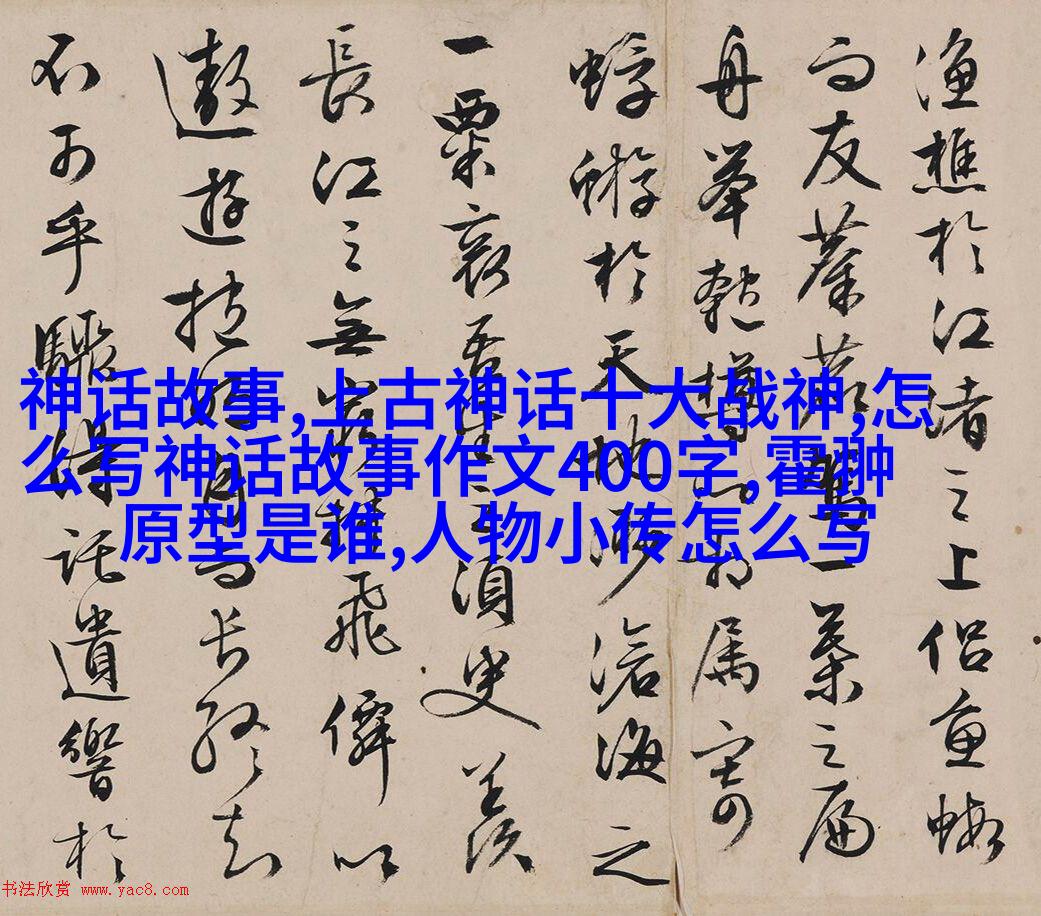 渔樵於江渚之上侣鱼蝦
而友麋鹿駕一葉之扁
舟舉匏樽以相属寄
蜉蝣於天地渺滄海之
一粟哀吾生之須臾羡
長江之無窮挾飛僊以
遨遊抱明月而長終知
不可乎驟得託遺響於
神话故事,上古神话十大战神,怎
么写神话故事作文400字,霍翀
原型是谁,人物小传怎么写
书法欣赏 www.yac8.com